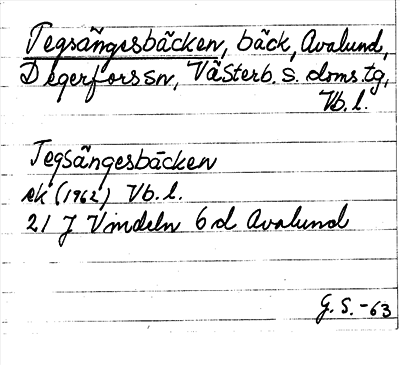 Tegsängesbäcken, bäck, Avalund,
Degerfors sn, Västerb. s. doms. tg,
Vb. l.
Tegsängesbäcken
ek (1962) Vb. l.
21 J Vindeln 6d Avalund
G. S. -63